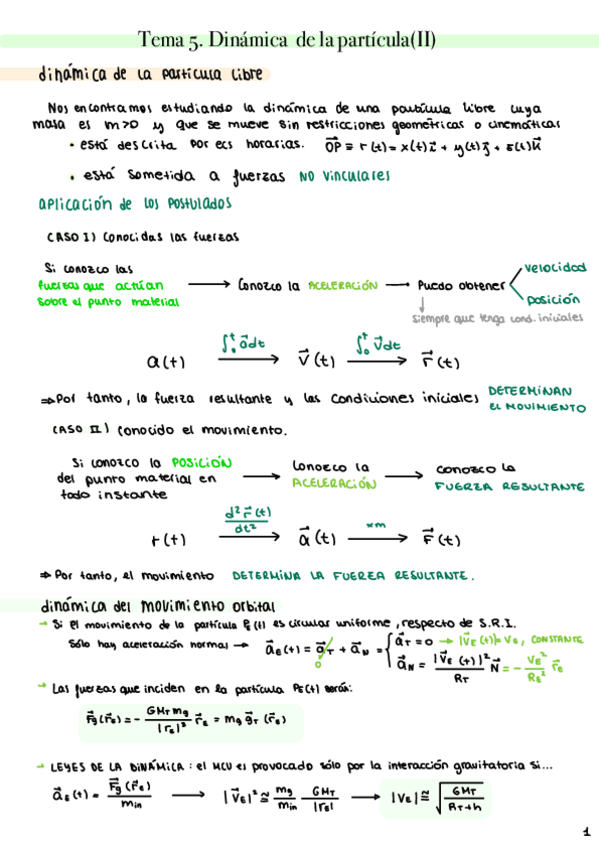 Tema 5. Dinámica de la partícula(II)
dinámica de la partícula libre
Nos encontramos estudiando la dinámica de una partícula libre cuya
masa es m>0 y que se mueve sin restricciones geométricas o cinemáticas
• está descrita por ecs horarias. OP⃗ ≡ r(t) = x(t)i⃗ + y(t)j⃗ + z(t)k⃗
• está sometida a fuerzas NO vinculares
aplicación de los postulados
CASO I) Conocidas las fuerzas
Si conozco las fuerzas que actúan sobre el punto material → Conozco la ACELERACIÓN → Puedo obtener velocidad posición
siempre que tenga cond. iniciales
a(t) ∫₀ᵗ a⃗dt → v⃗(t) ∫₀ᵗ v⃗dt → r⃗(t)
⇒ Por tanto, la fuerza resultante y las condiciones iniciales DETERMINAN EL MOVIMIENTO
CASO II) conocido el movimiento.
Si conozco la POSICIÓN del punto material en todo instante → Conozco la ACELERACIÓN → conozco la FUERZA RESULTANTE
r(t) d² r⃗(t)/dt² → a⃗(t) xm → F⃗(t)
⇒ Por tanto, el movimiento DETERMINA LA FUERZA RESULTANTE.
dinámica del movimiento orbital
→ Si el movimiento de la partícula PE(t) es circular uniforme, respecto de S.R.I.
Sólo hay aceleración normal → a⃗E(t) = a⃗T + a⃗N = { a⃗T = 0 → |v⃗E(t)| = vE, CONSTANTE
0
a⃗N = |v⃗E(t)|²/RT N⃗ = - vE²/RE² r⃗E
→ Las fuerzas que inciden en la partícula PE(t) serán:
F⃗g(r⃗E) = - GMT mg/|rE|³ r⃗E = mg g⃗T (r⃗E)
→ LEYES DE LA DINÁMICA: el MCU es provocado sólo por la interacción gravitatoria si...
a⃗E(t) = F⃗g(r⃗E)/min → |v⃗E|² ≅ mg/min GMT/|rE| → |vE| ≅ √(GMT/RT+h)
1